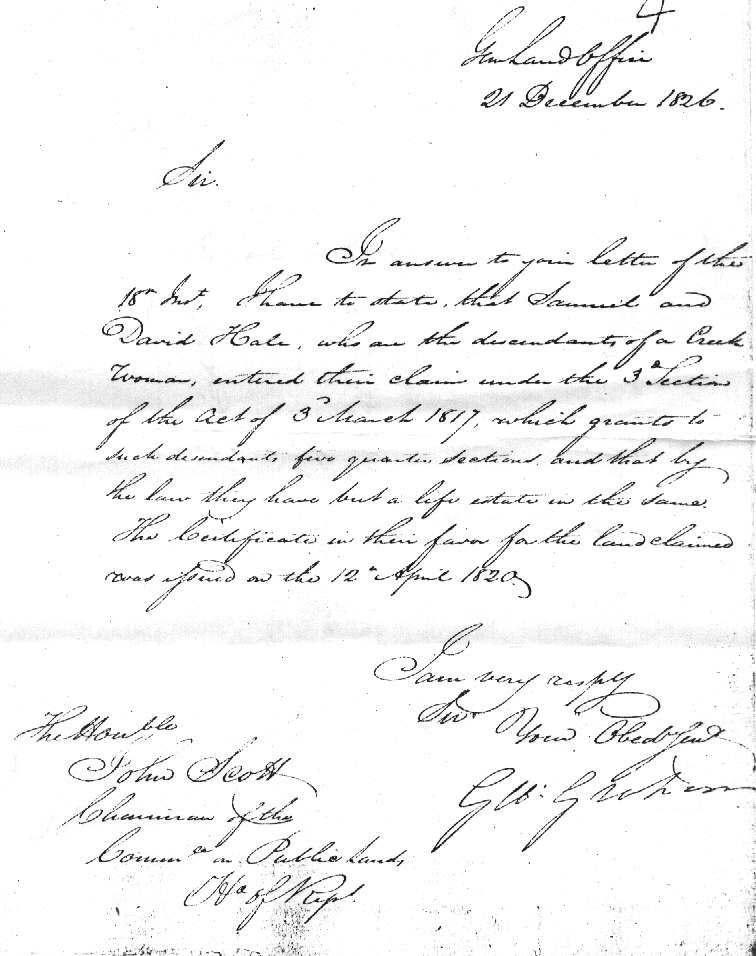 4
Gen Land Office
21 December 1826.
Sir.
In answer to your letter of the
18th Inst, I have to state, that Samuel and
David Hale, who are the descendants of a Creek
Woman, entered their claim under the 3d Section
of the Act of 3 March 1817, which grants to
such descendants five quarter sections, and that by
the law they have but a life estate in the same.
The Certificate in their favor for the land claimed
was issued on the 12th April 1820,
I am very resply
Sir Your Obedt Servt
Geo: Graham
The Honble
John Scott
Chairman of the
Commee on Public Lands,
Ho of Repl.